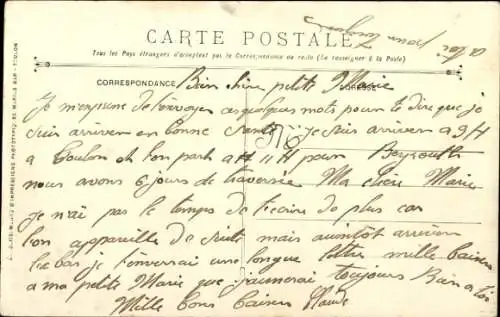 a toi pour toujours
CARTE POSTALE
Tous les Pays étrangers n'acceptent pas la Correspondance au recto (Se renseigner à la Poste)
CORRESPONDANCE
Bien chère petite Marie
Je m'empresse de t'envoyer ces quelques mots pour te dire que je
suis arriver en bonne Santé je suis arriver a 9 H
a Toulon et l'on part a 11 H pour Beyrouth
nous avons 6 jours de traversée Ma chère Marie
je n'ai pas le temps de t'ecrire de plus car
l'on appareille de suite mais aussitôt arriver
la bas je t'enverrai une longue lettre mille baisers
a ma petite Marie que j'aimerai toujours Bien a toi
Mille bons baisers